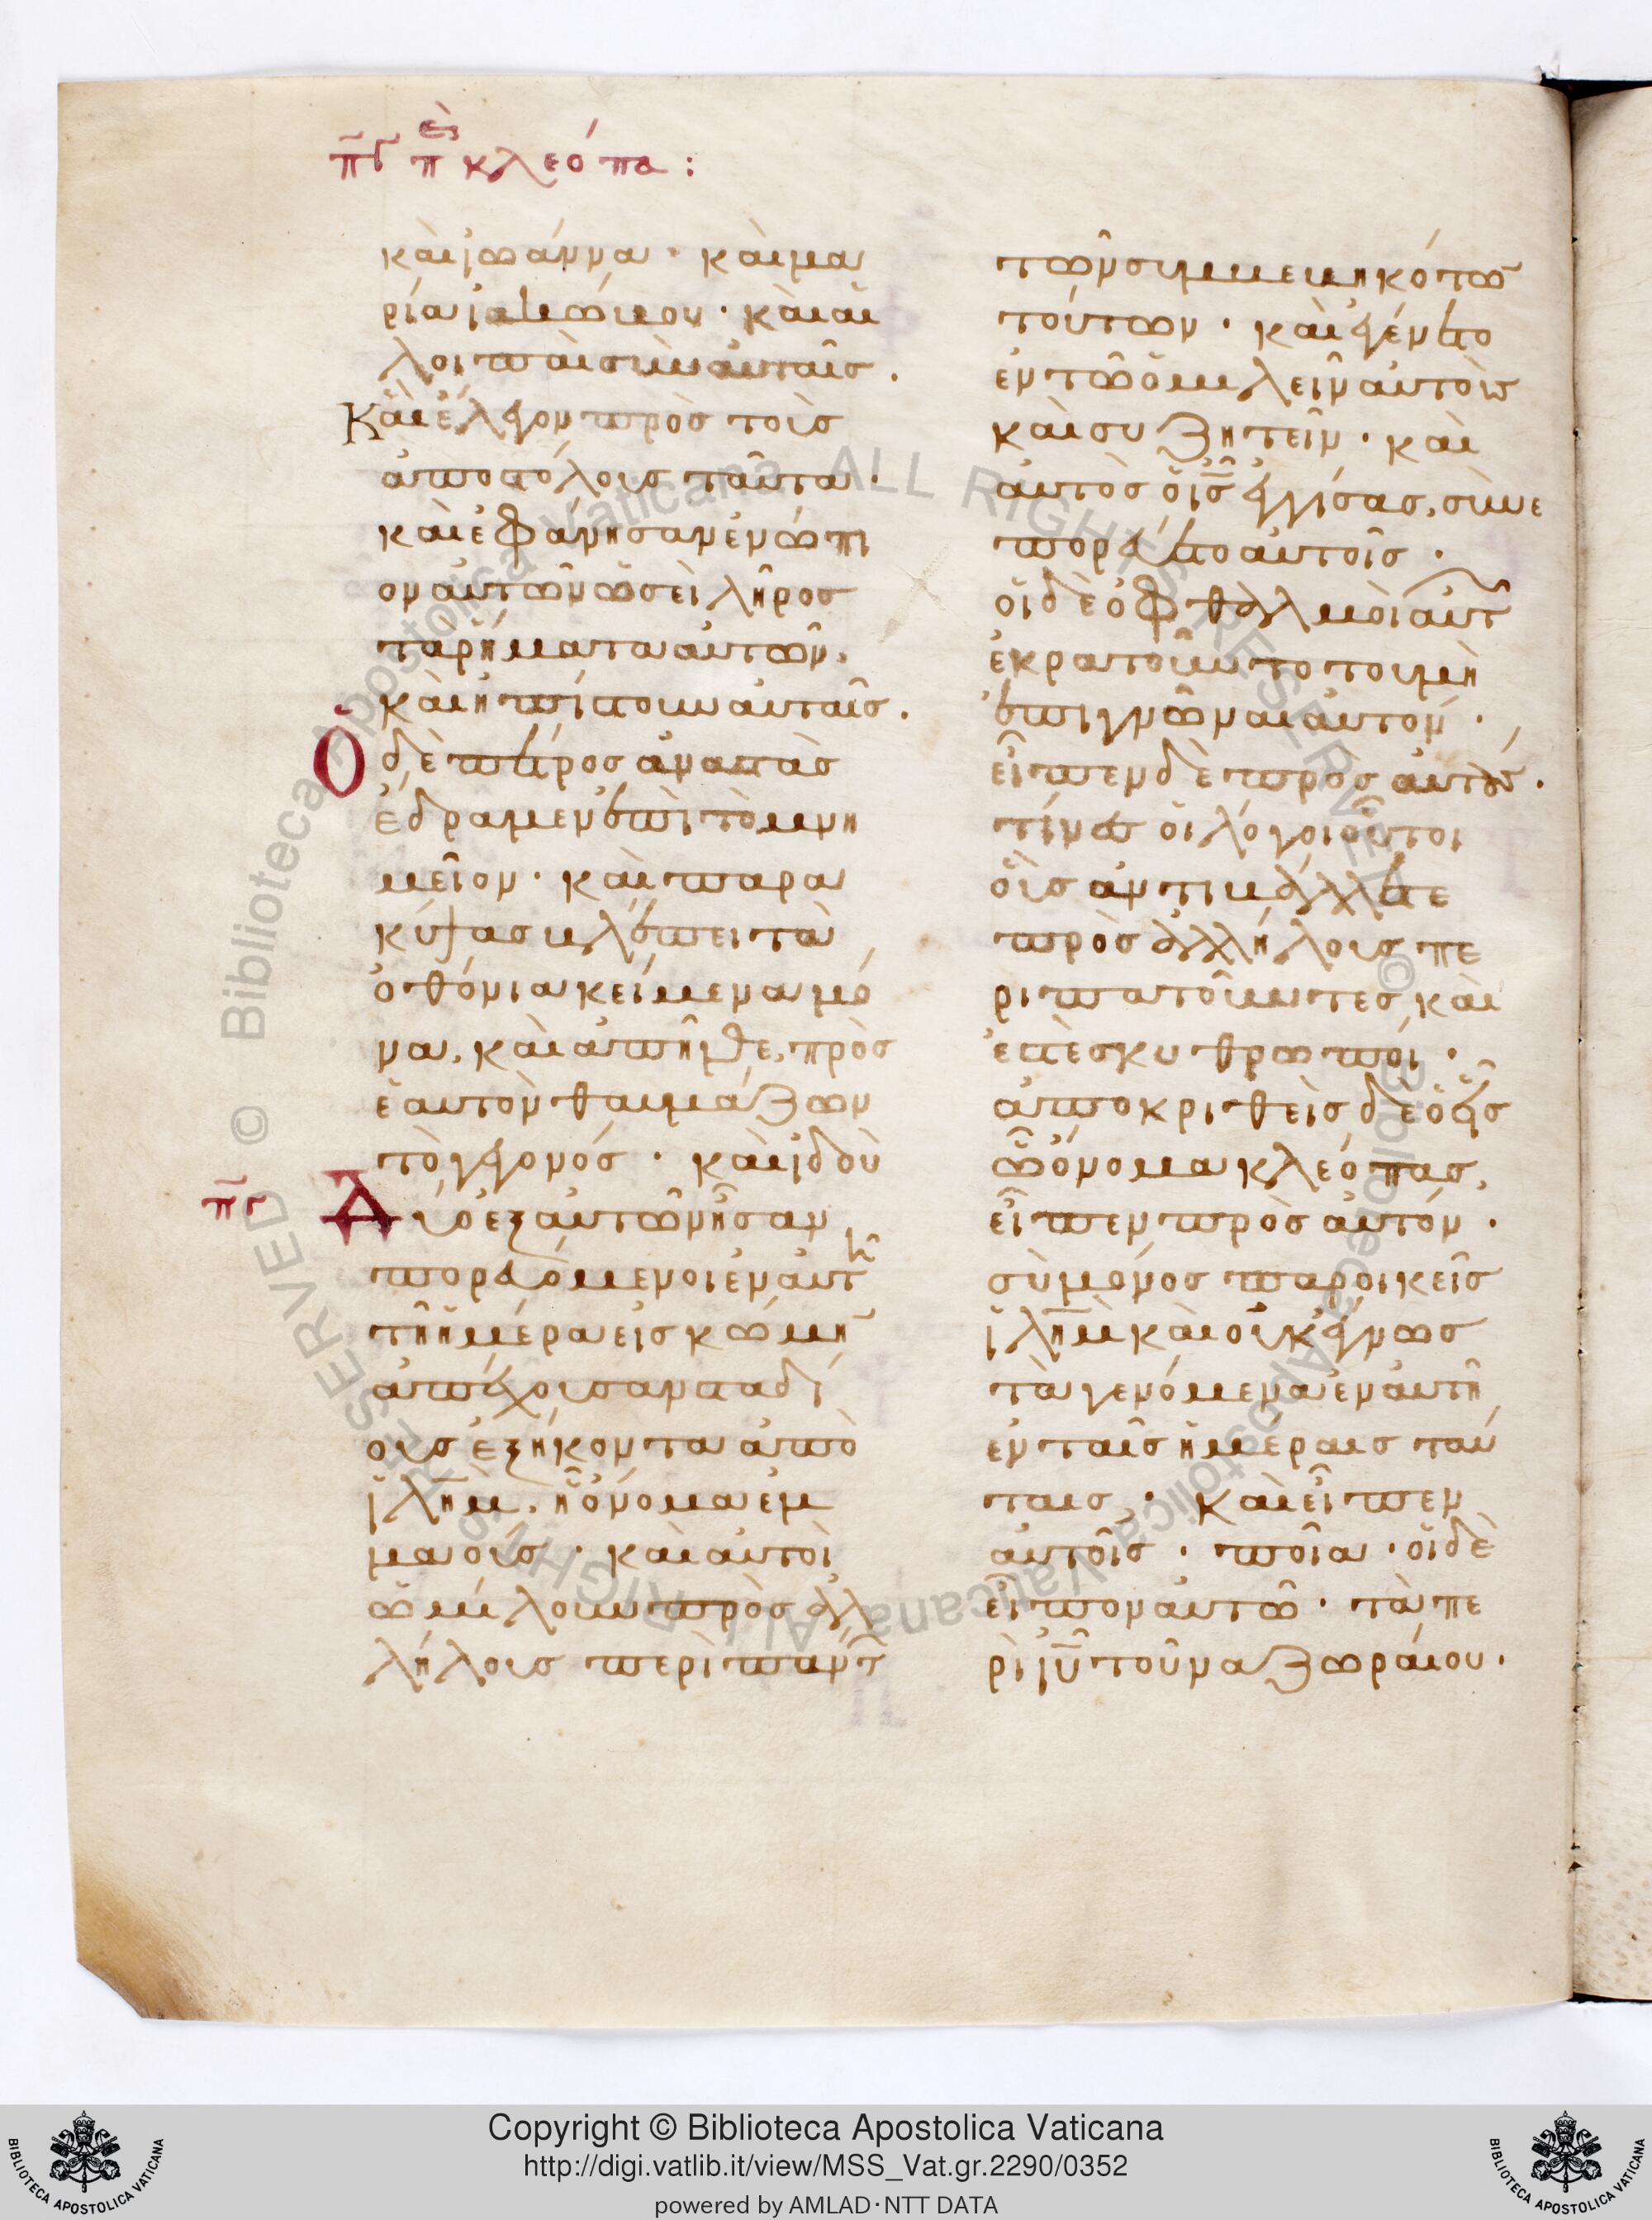 πγ πε κλεόπα :
καὶ ϊωάννα · καὶ μα
ρία ϊακώβου · καὶ αἱ
λοιπαὶ σὺν αὐταῖς .
Καὶ ἔλεγον πρὸς τοὺς
ἀποστόλους ταῦτα ·
καὶ ἐφάνησαν ἐνώπι
ον αὐτῶν ὡσεὶ λῆρος
τὰ ρήματα αὐτῶν ,
καὶ ἠπίστουν αὐταῖς .
Ὁ δὲ πέτρος ἀναστὰς
ἔδραμεν ἐπὶ τὸ μνη
μεῖον · καὶ παρα
κύψας βλέπει τὰ
ὀθόνια κείμενα μό
να , καὶ ἀπῆλθε , πρὸς
ἑαυτὸν θαυμάζων
τὸ γεγονός · καὶ ϊδοὺ
πγ
Δύο ἐξ αὐτῶν ἦσαν
πορευόμενοι ἐν αὐτῇ
τῇ ἡμέρα εἰς κώμην
ἀπέχουσαν σταδί
ους ἑξήκοντα ἀπὸ
ϊλημ , ἧ ὄνομα ἐμ
μαούς · καὶ αὐτοὶ
ὡμίλουν πρὸς ἀλ
λήλους περὶ πάντ
τῶν συμβεβηκότων
τούτων · καὶ ἐγένετο
ἐν τῷ ὁμιλεῖν αὐτοὺς
καὶ συζητεῖν · καὶ
αὐτὸς ὁ ις ἐγγίσας , συνε
πορεύετο αὐτοῖς ·
οἱ δὲ ὀφθαλμοὶ αὐτῶν
ἐκρατοῦντο τοῦ μὴ
ἐπιγνῶναι αὐτόν ·
εἶπεν δὲ πρὸς αὐτούς ·
τίνες οἱ λόγοι οὗτοι
οὓς ἀντιβάλλετε
πρὸς ἀλλήλους πε
ριπατοῦντες καὶ
ἐστὲ σκυθρωποί ·
ἀποκριθεὶς δὲ ὁ εἷς
ὧ ὄνομα κλεόπας ,
εἶπεν πρὸς αὐτόν ·
σὺ μόνος παροικεῖς
ϊλημ καὶ οὐκ ἔγνως
τὰ γενόμενα ἐν αὐτῇ
ἐν ταῖς ἡμέραις ταύ
ταις · καὶ εἶπεν
αὐτοῖς · ποῖα · οἱ δὲ
εἶπον αὐτῶ · τὰ πε
ρὶ ϊυ τοῦ ναζωραίου ·
Copyright © Biblioteca Apostolica Vaticana
http://digi.vatlib.it/view/MSS_Vat.gr.2290/0352
powered by AMLAD·NTT DATA
BIBLIOTECA APOSTOLICA VATICANA
BIBLIOTECA APOSTOLICA VATICANA
© Biblioteca Apostolica Vaticana ALL RIGHTS RESERVED © Biblioteca Apostolica Vaticana ALL RIGHTS RESERVED